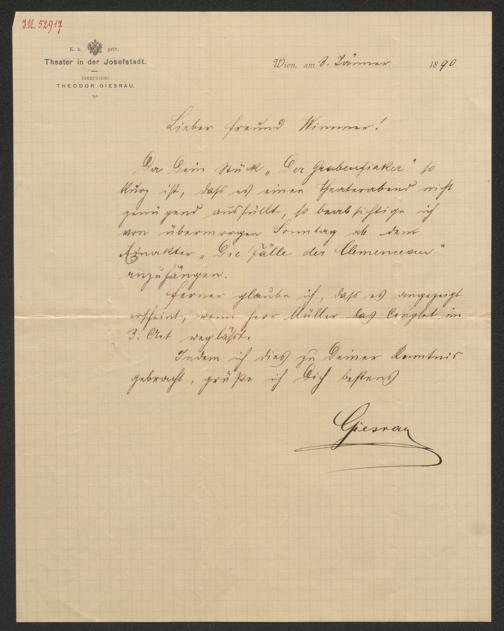 I.N. 52917
K. k. priv.
Theater in der Josefstadt.
DIRECTION:
THEODOR GIESRAU.
Wien, am 8. Jänner 1890
Lieber Freund Wimmer!
Da Dein Stück „Der Grabenfiaker" so
kurz ist, daß es einen Theaterabend nicht
genügend ausfüllt, so beabsichtige ich
von übermorgen Sonntag ab den
Einakter „Die Fälle des Clemenceau"
anzuhängen.
Ferner glaube ich, daß es angezeigt
erscheint, wenn Herr Müller das Couplet im
3. Act wegläßt.
Indem ich dies zu Deiner Kenntnis
gebracht, grüße ich Dich bestens
Giesrau